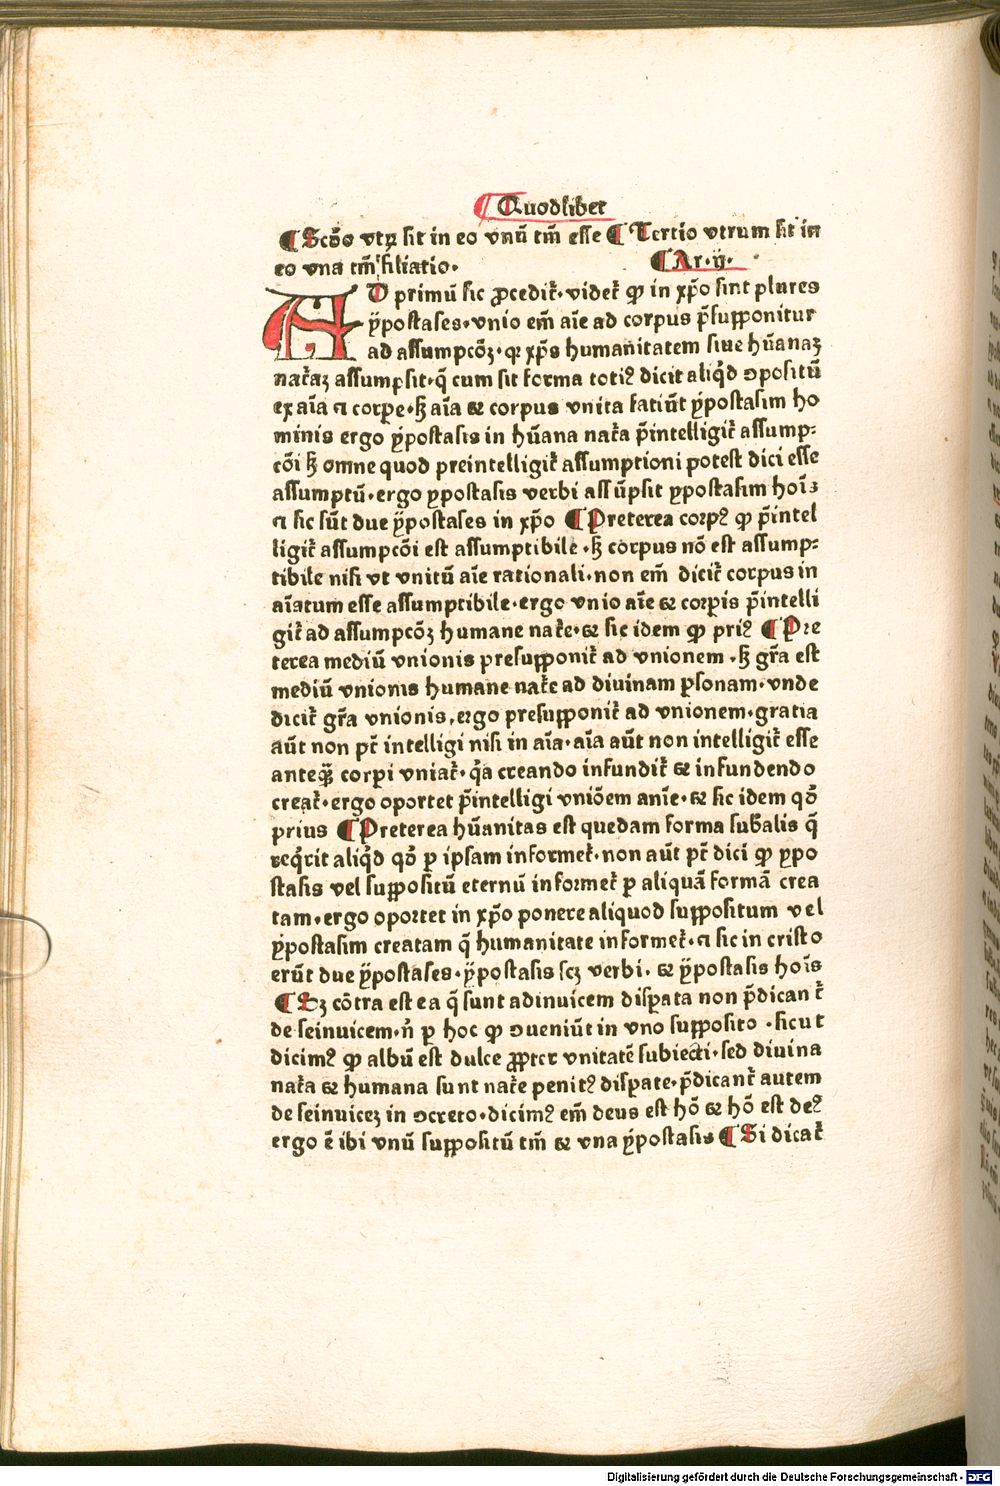 ¶ Quodlibet
¶ Scđo vtꝝ sit in eo vnū tm̄ esse ¶ Tertio vtrum sit in
eo vna tm̄ filiatio. ¶ Ar. ij.
AD primū sic ꝓcedit̃. videt̃ ꝙ in xp̄o sint plures
ẏpostases. vnio em̄ aīe ad corpus p̄supponitur
ad assumpcōꝫ. qꝛ xp̄s humanitatem siue hūanaꝫ
nat̃aꝫ assumpsit. q̄ cum sit forma totiꝰ dicit aliq̇d ꝯpositū
ex aīa ⁊ corpe. sꝫ aīa & corpus vnita fatiūt ẏpostasim ho
minis ergo ẏpostasis in hūana nat̃a p̄intelligit̃ assump⸗
cōi sꝫ omne quod preintelligit̃ assumptioni potest dici esse
assumptū. ergo ypostasis verbi assūpsit ypostasim hoīꝫ
⁊ sic sūt due ẏpostases in xp̄o ¶ Preterea corpꝰ ꝙ p̄intel
ligit̃ assumpcōi est assumptibile. sꝫ corpus nō est assump⸗
tibile nisi vt vnitū aīe rationali. non em̄ dicit̃ corpus in
aīatum esse assumptibile. ergo vnio aīe & corpis p̄intelli
git̃ ad assumpcōꝫ humane nat̃e. & sic idem ꝙ priꝰ ¶ Pre
terea mediū vnionis presupponit̃ ad vnionem. sꝫ gr̄a est
mediū vnionis humane nat̃e ad diuinam ꝑsonam. vnde
dicit̃ gr̄a vnionis, ergo presupponit̃ ad vnionem. gratia
aūt non pt̄ intelligi nisi in aīa. aīa aūt non intelligit̃ esse
anteq̄ꝫ corpi vniat̃. q̇a creando infundit̃ & infundendo
creat̃. ergo oportet p̄intelligi vniōem anīe. & sic idem qđ
prius ¶ Preterea hūanitas est quedam forma sub̄alis q̄
req̇rit aliq̇d qđ ꝑ ipsam informet̃. non aūt pt̄ dici ꝙ ypo
stasis vel suppositū eternū informet̃ ꝑ aliquā formā crea
tam. ergo oportet in xp̄o ponere aliquod suppositum vel
ẏpostasim creatam q̄ humanitate informet̃. ⁊ sic in cristo
erūt due ẏpostases. ẏpostasis scꝫ verbi. & ẏpostasis hoīs
¶ Sꝫ cōtra est ea q̄ sunt adinuicem dispata non p̄dicant̃
de seinuicem. n̄ ꝑ hoc ꝙ ꝯueniūt in vno supposito. sicut
dicimꝰ ꝙ albū est dulce ꝓpter vnitatē subiecti. sed diuina
nat̃a & humana sunt nat̃e penitꝰ dispate. p̄dicant̃ autem
de seinuiceꝫ in ꝯcreto. dicimꝰ em̄ deus est hō & hō est deꝰ
ergo ē ibi vnū suppositū tm̄ & vna ẏpostasis ¶ Si dicat̃
Digitalisierung gefördert durch die Deutsche Forschungsgemeinschaft - DFG